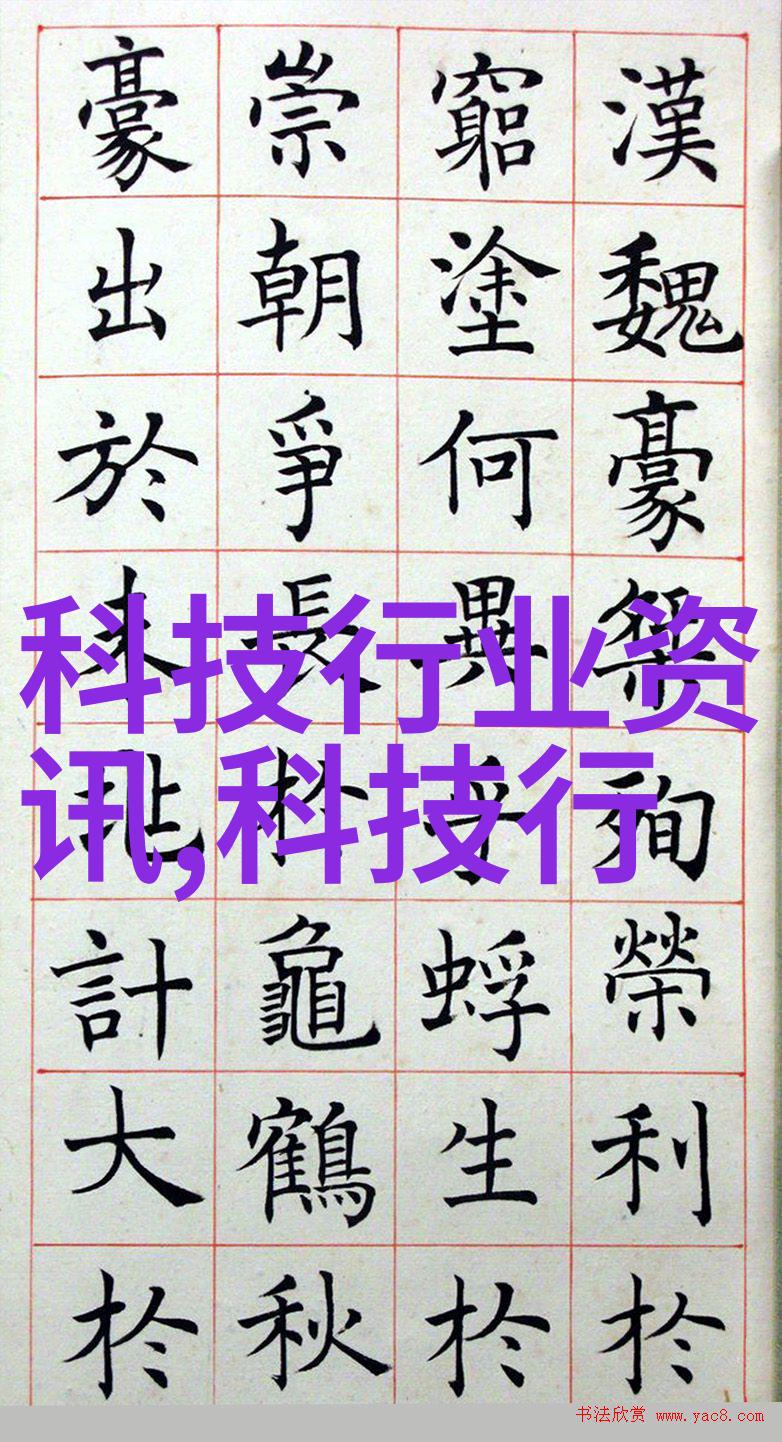 科技行业资
讯,科技行
漢魏豪桀殉榮利於
窮塗何異乎蜉生於
崇朝爭長於龜鶴秋
豪出於未兆計大於
书法欣赏 www.yac8.com